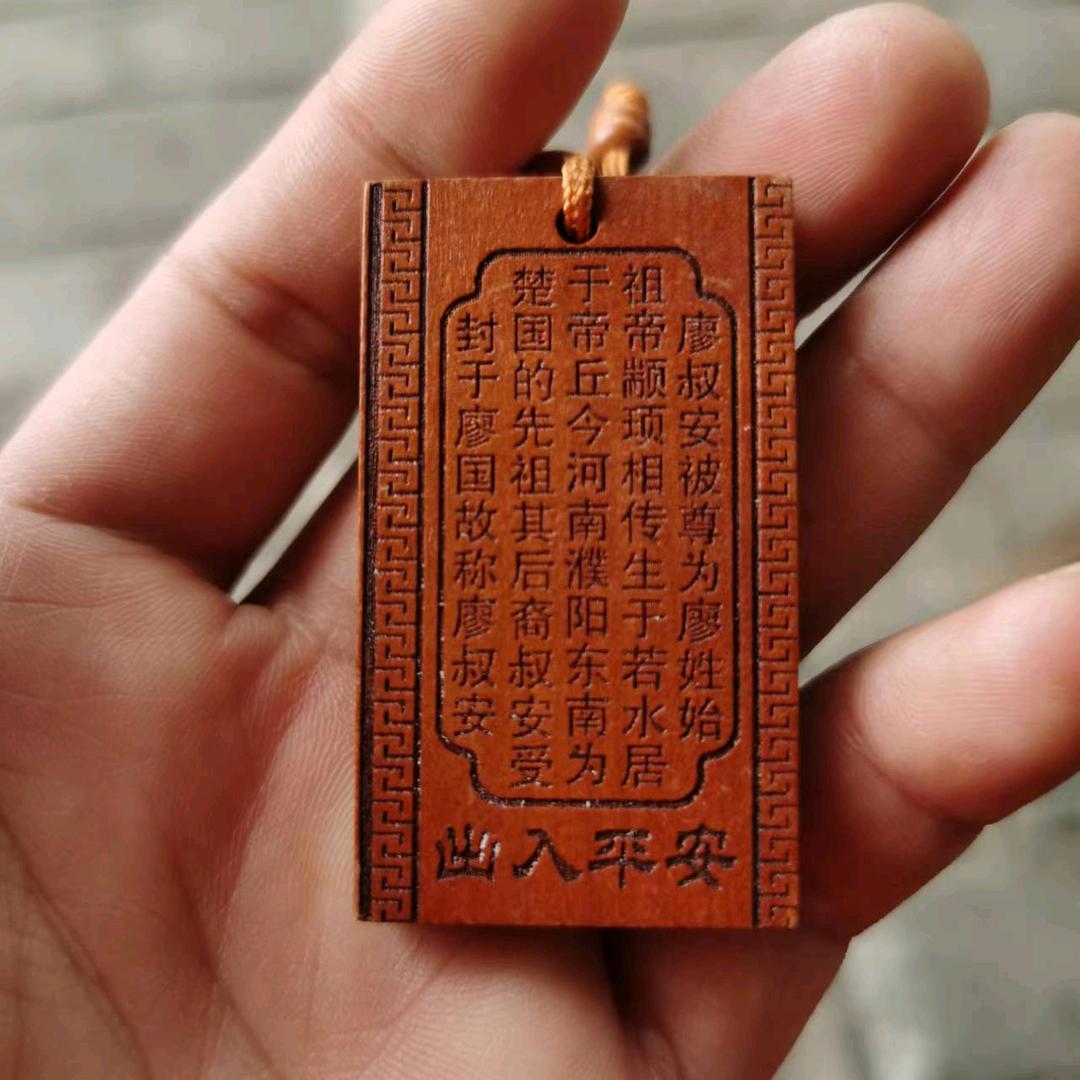 廖叔安被尊为廖姓始
祖帝颛顼相传生于若水居
于帝丘今河南濮阳东南为
楚国的先祖其后裔叔安受
封于廖国故称廖叔安
出入平安